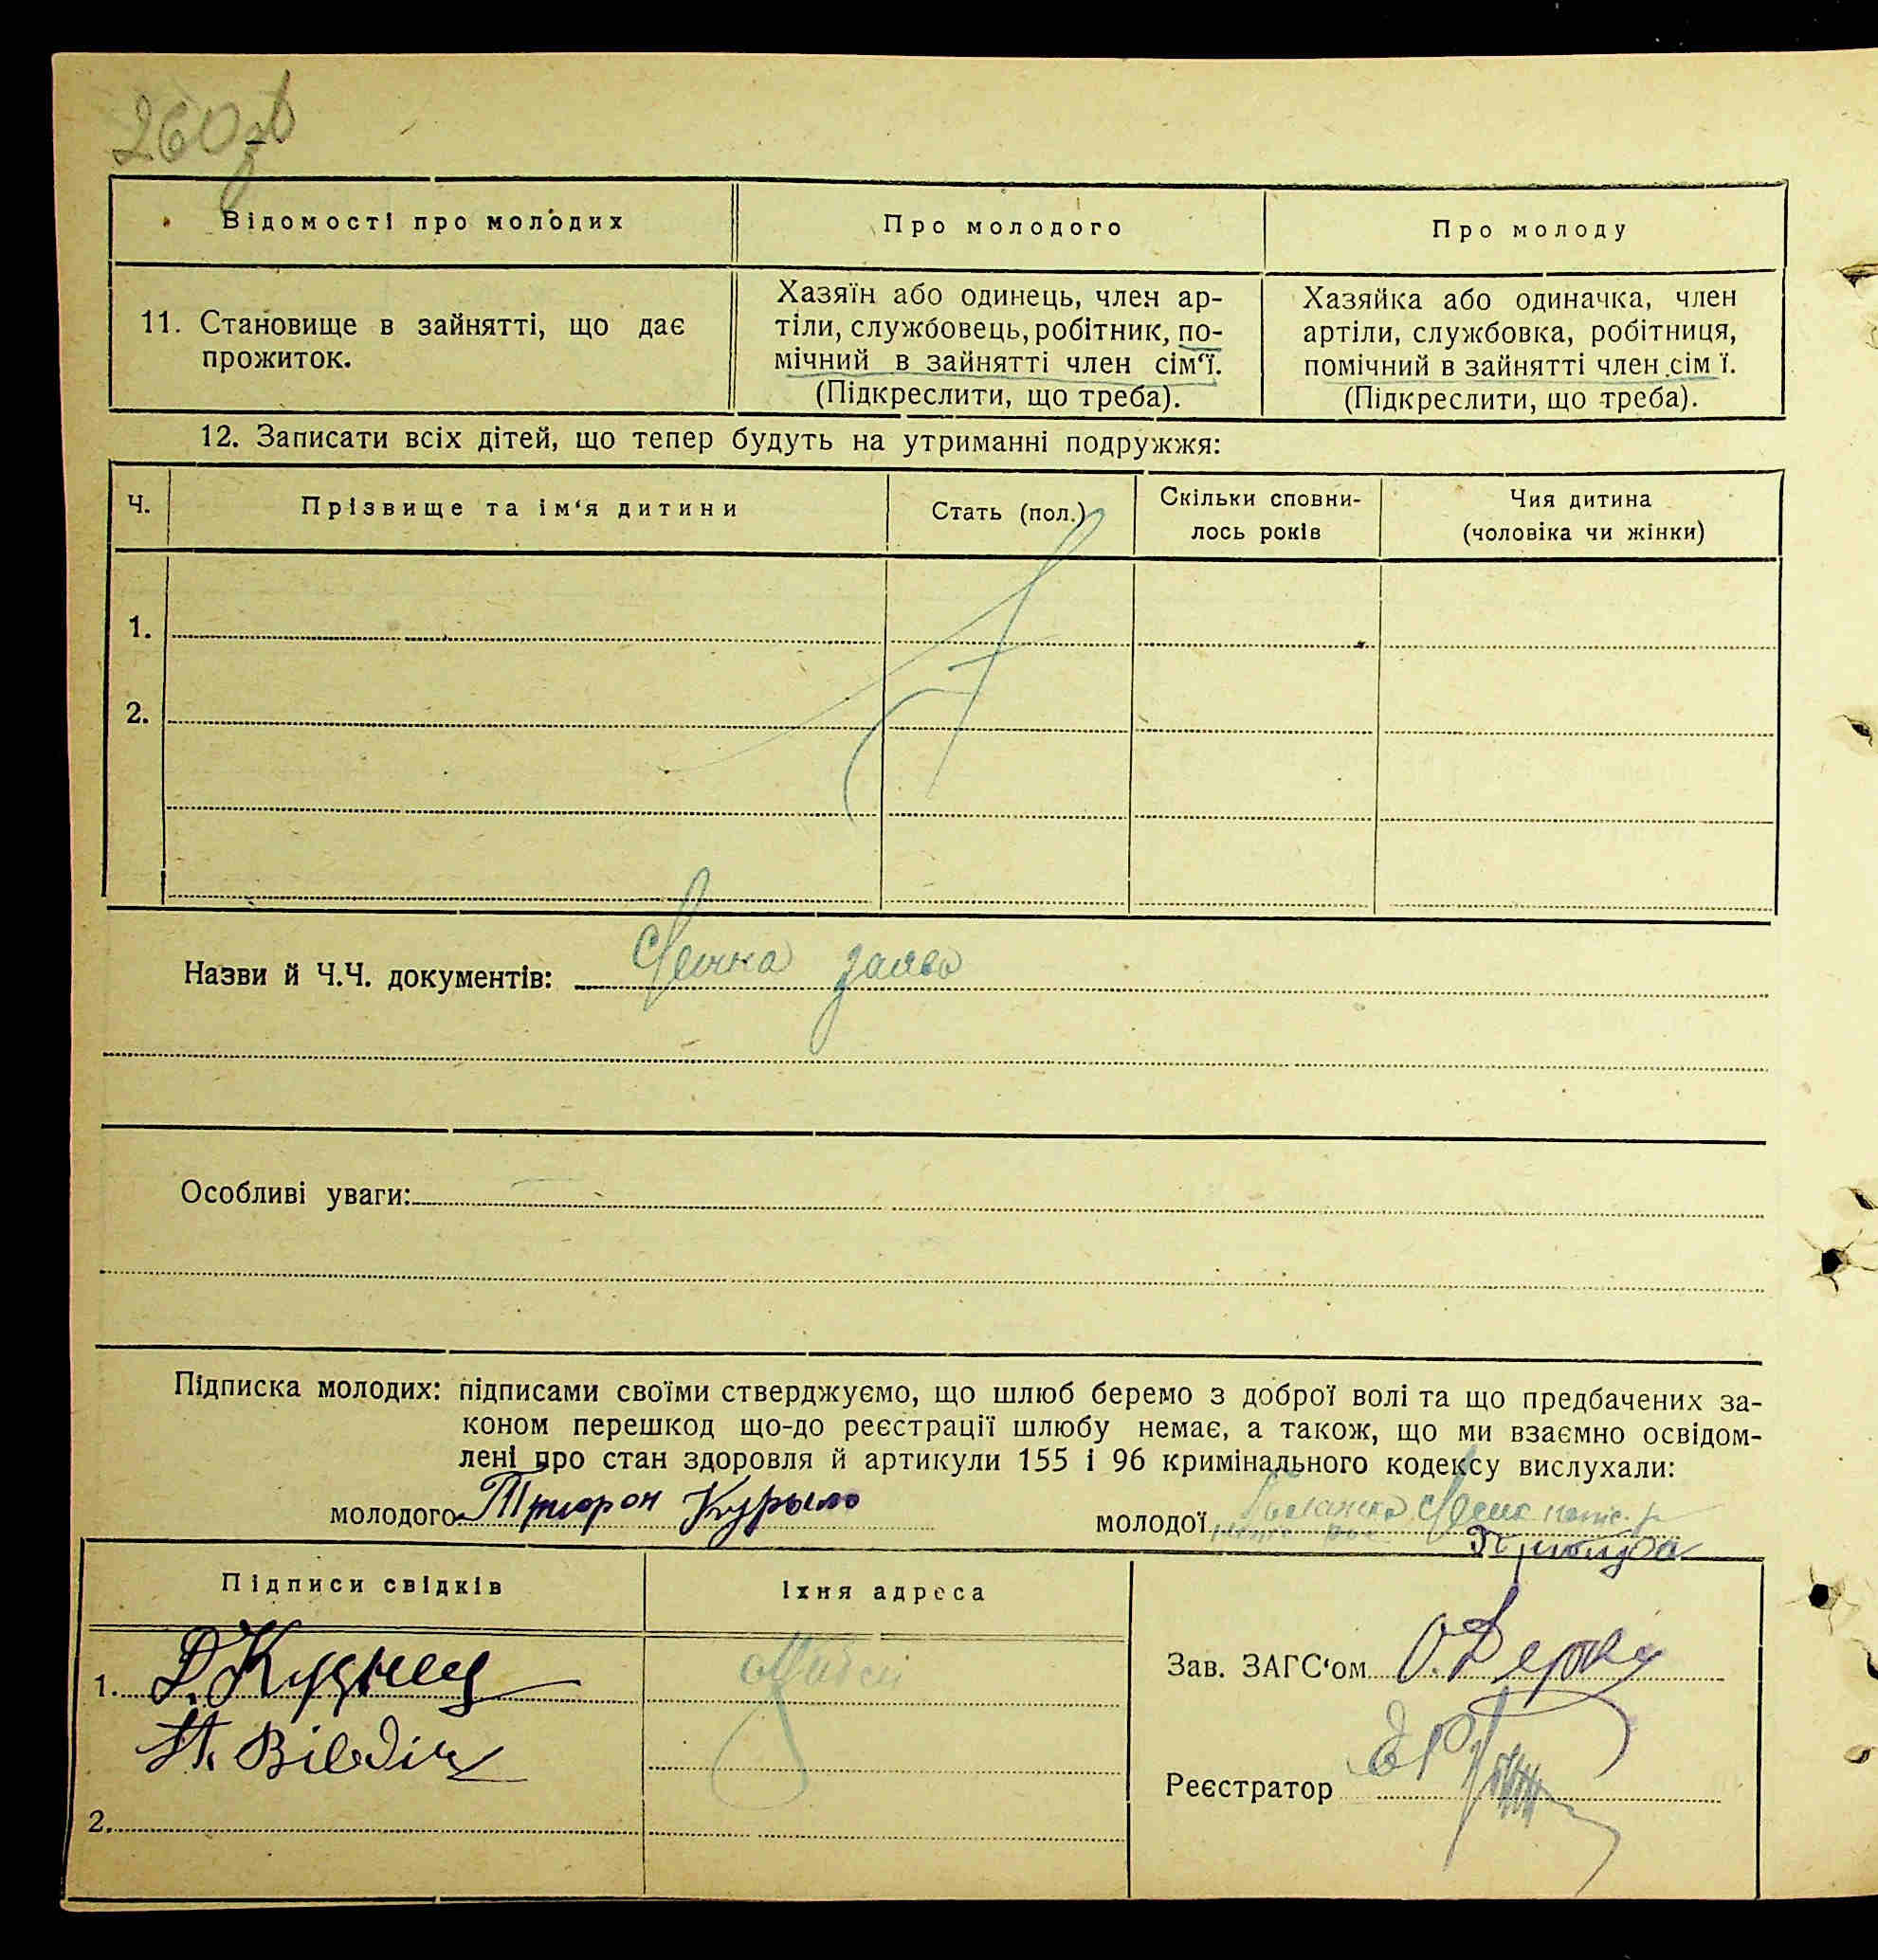 260зв
Відомості про молодих
Про молодого
Про молоду
11. Становище в зайнятті, що дає
прожиток.
Хазяїн або одинець, член ар-
тіли, службовець, робітник, по-
мічний в зайнятті член сім‘ї.
(Підкреслити, що треба).
Хазяйка або одиначка, член
артіли, службовка, робітниця,
помічний в зайнятті член сім ї.
(Підкреслити, що треба).
12. Записати всіх дітей, що тепер будуть на утриманні подружжя:
Ч.
Прізвище та ім‘я дитини
Стать (пол.)
Скільки сповни-
лось років
Чия дитина
(чоловіка чи жінки)
1.
2.
Назви й Ч.Ч. документів: заява
Особливі уваги:
Підписка молодих: підписами своїми стверджуємо, що шлюб беремо з доброї волі та що предбачених за-
коном перешкод що-до реєстрації шлюбу немає, а також, що ми взаємно освідом-
лені про стан здоровля й артикули 155 і 96 кримінального кодексу вислухали:
молодого Курыло
молодої
Підписи свідків
Їхня адреса
1. Д. Кузнец
2.
Зав. ЗАГС‘ом
Реєстратор